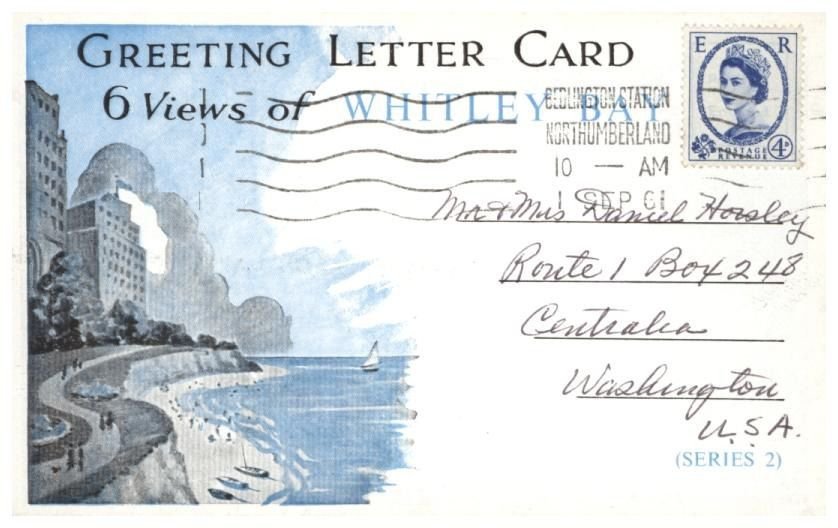 GREETING LETTER CARD
6 Views of WHITLEY BAY
E R
POSTAGE
REVENUE
4D
BEDLINGTON STATION
NORTHUMBERLAND
10 — AM
1 SEP 61
Mr & Mrs Daniel Horsley
Route 1 Box 248
Centralia
Washington
U.S.A.
(SERIES 2)